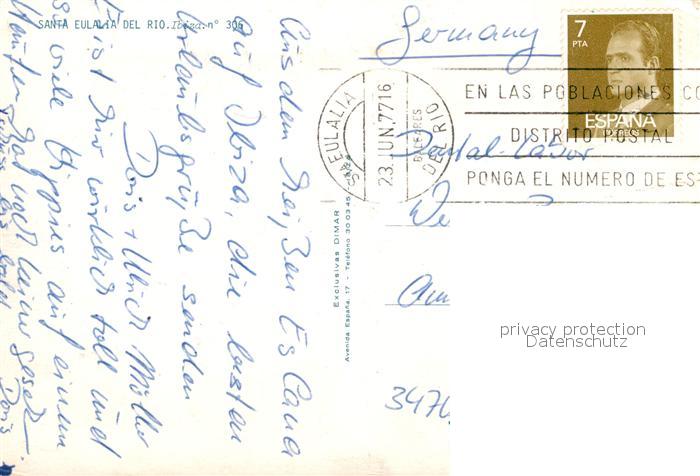 SANTA EULALIA DEL RIO. Ibiza. n° 306
Aus dem heißen Es Cana
auf Ibiza, die besten
Urlaubsgrüße senden
Doris + Ulrich Möller
Es ist hier wirklich toll und
so viele Hippies auf einem
Haufen hab noch keine gesehen
bis bald Doris
Exclusivas DIMAR
Avenida España, 17 - Teléfono 30 03 45
Germany
7
PTA
ESPAÑA
CORREOS
STA EULALIA
23 JUN. 77 16
BALEARES
DEL RIO
EN LAS POBLACIONES CO
DISTRITO POSTAL
PONGA EL NUMERO DE EST
Dental-Labor
We
Am
3470
privacy protection
Datenschutz